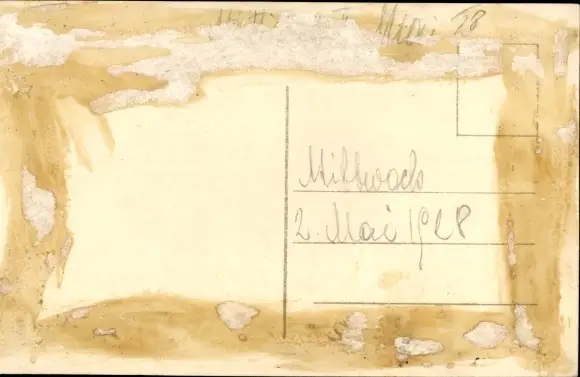 Mai 28
Mittwoch
2. Mai 1928